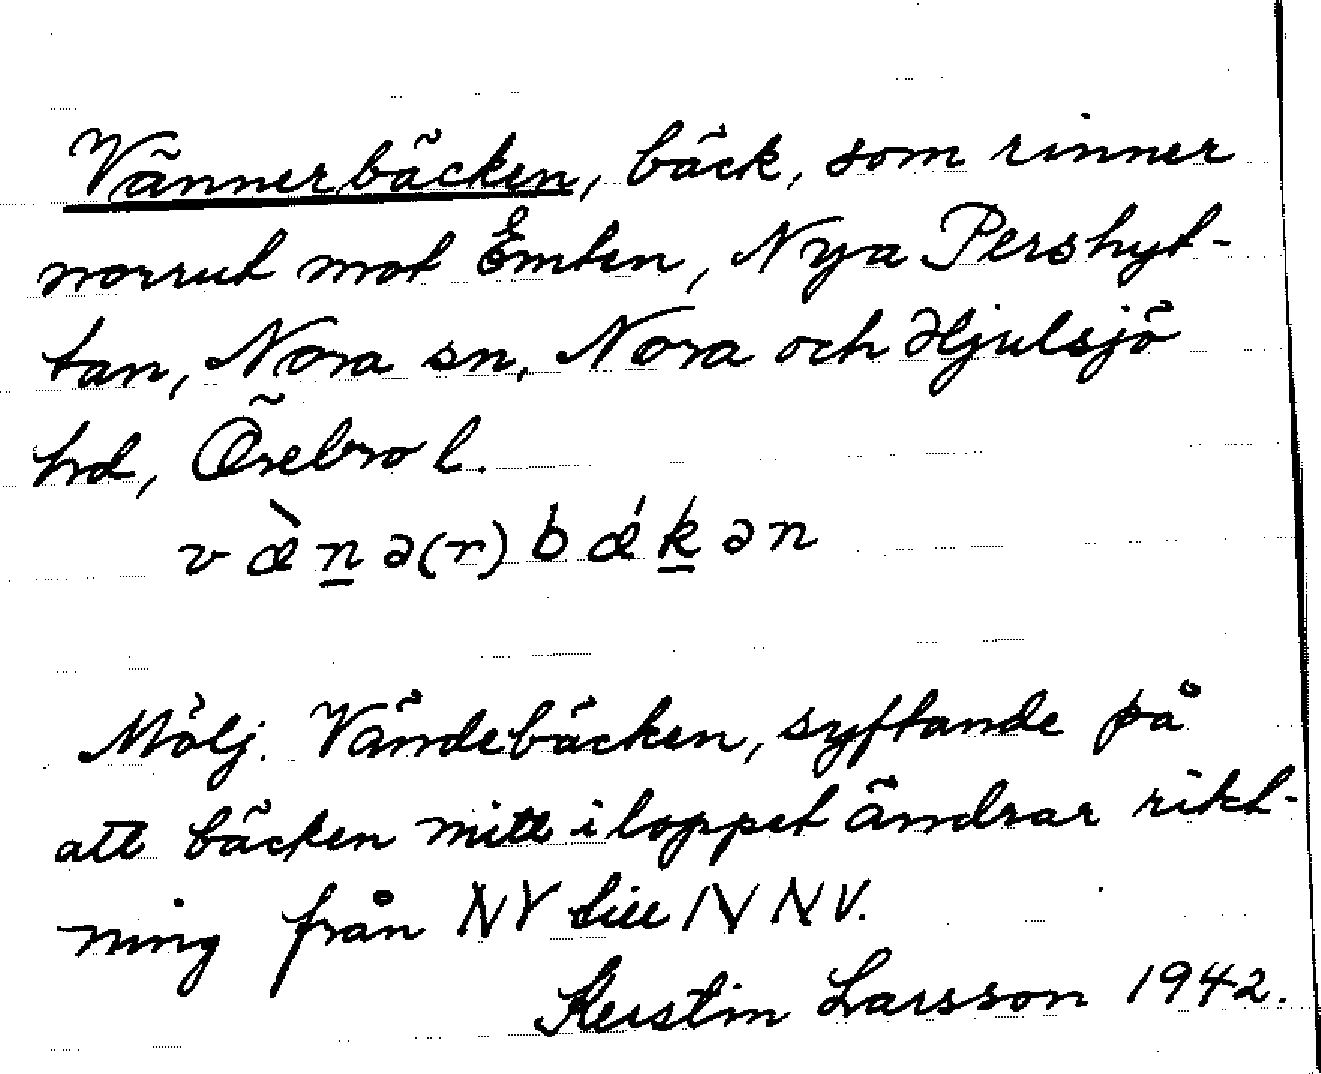 Vännerbäcken, bäck, som rinner
norrut mot Emten, Nya Pershyt-
tan, Nora sn, Nora och Hjulsjö
hrd, Örebro l.
v æ̀ n̲ ə(r) b ǽ k̲ ə n
Möjl. Vändebäcken, syftande på
att bäcken mitt i loppet ändrar rikt-
ning från NV till NNV.
Kerstin Larsson 1942.